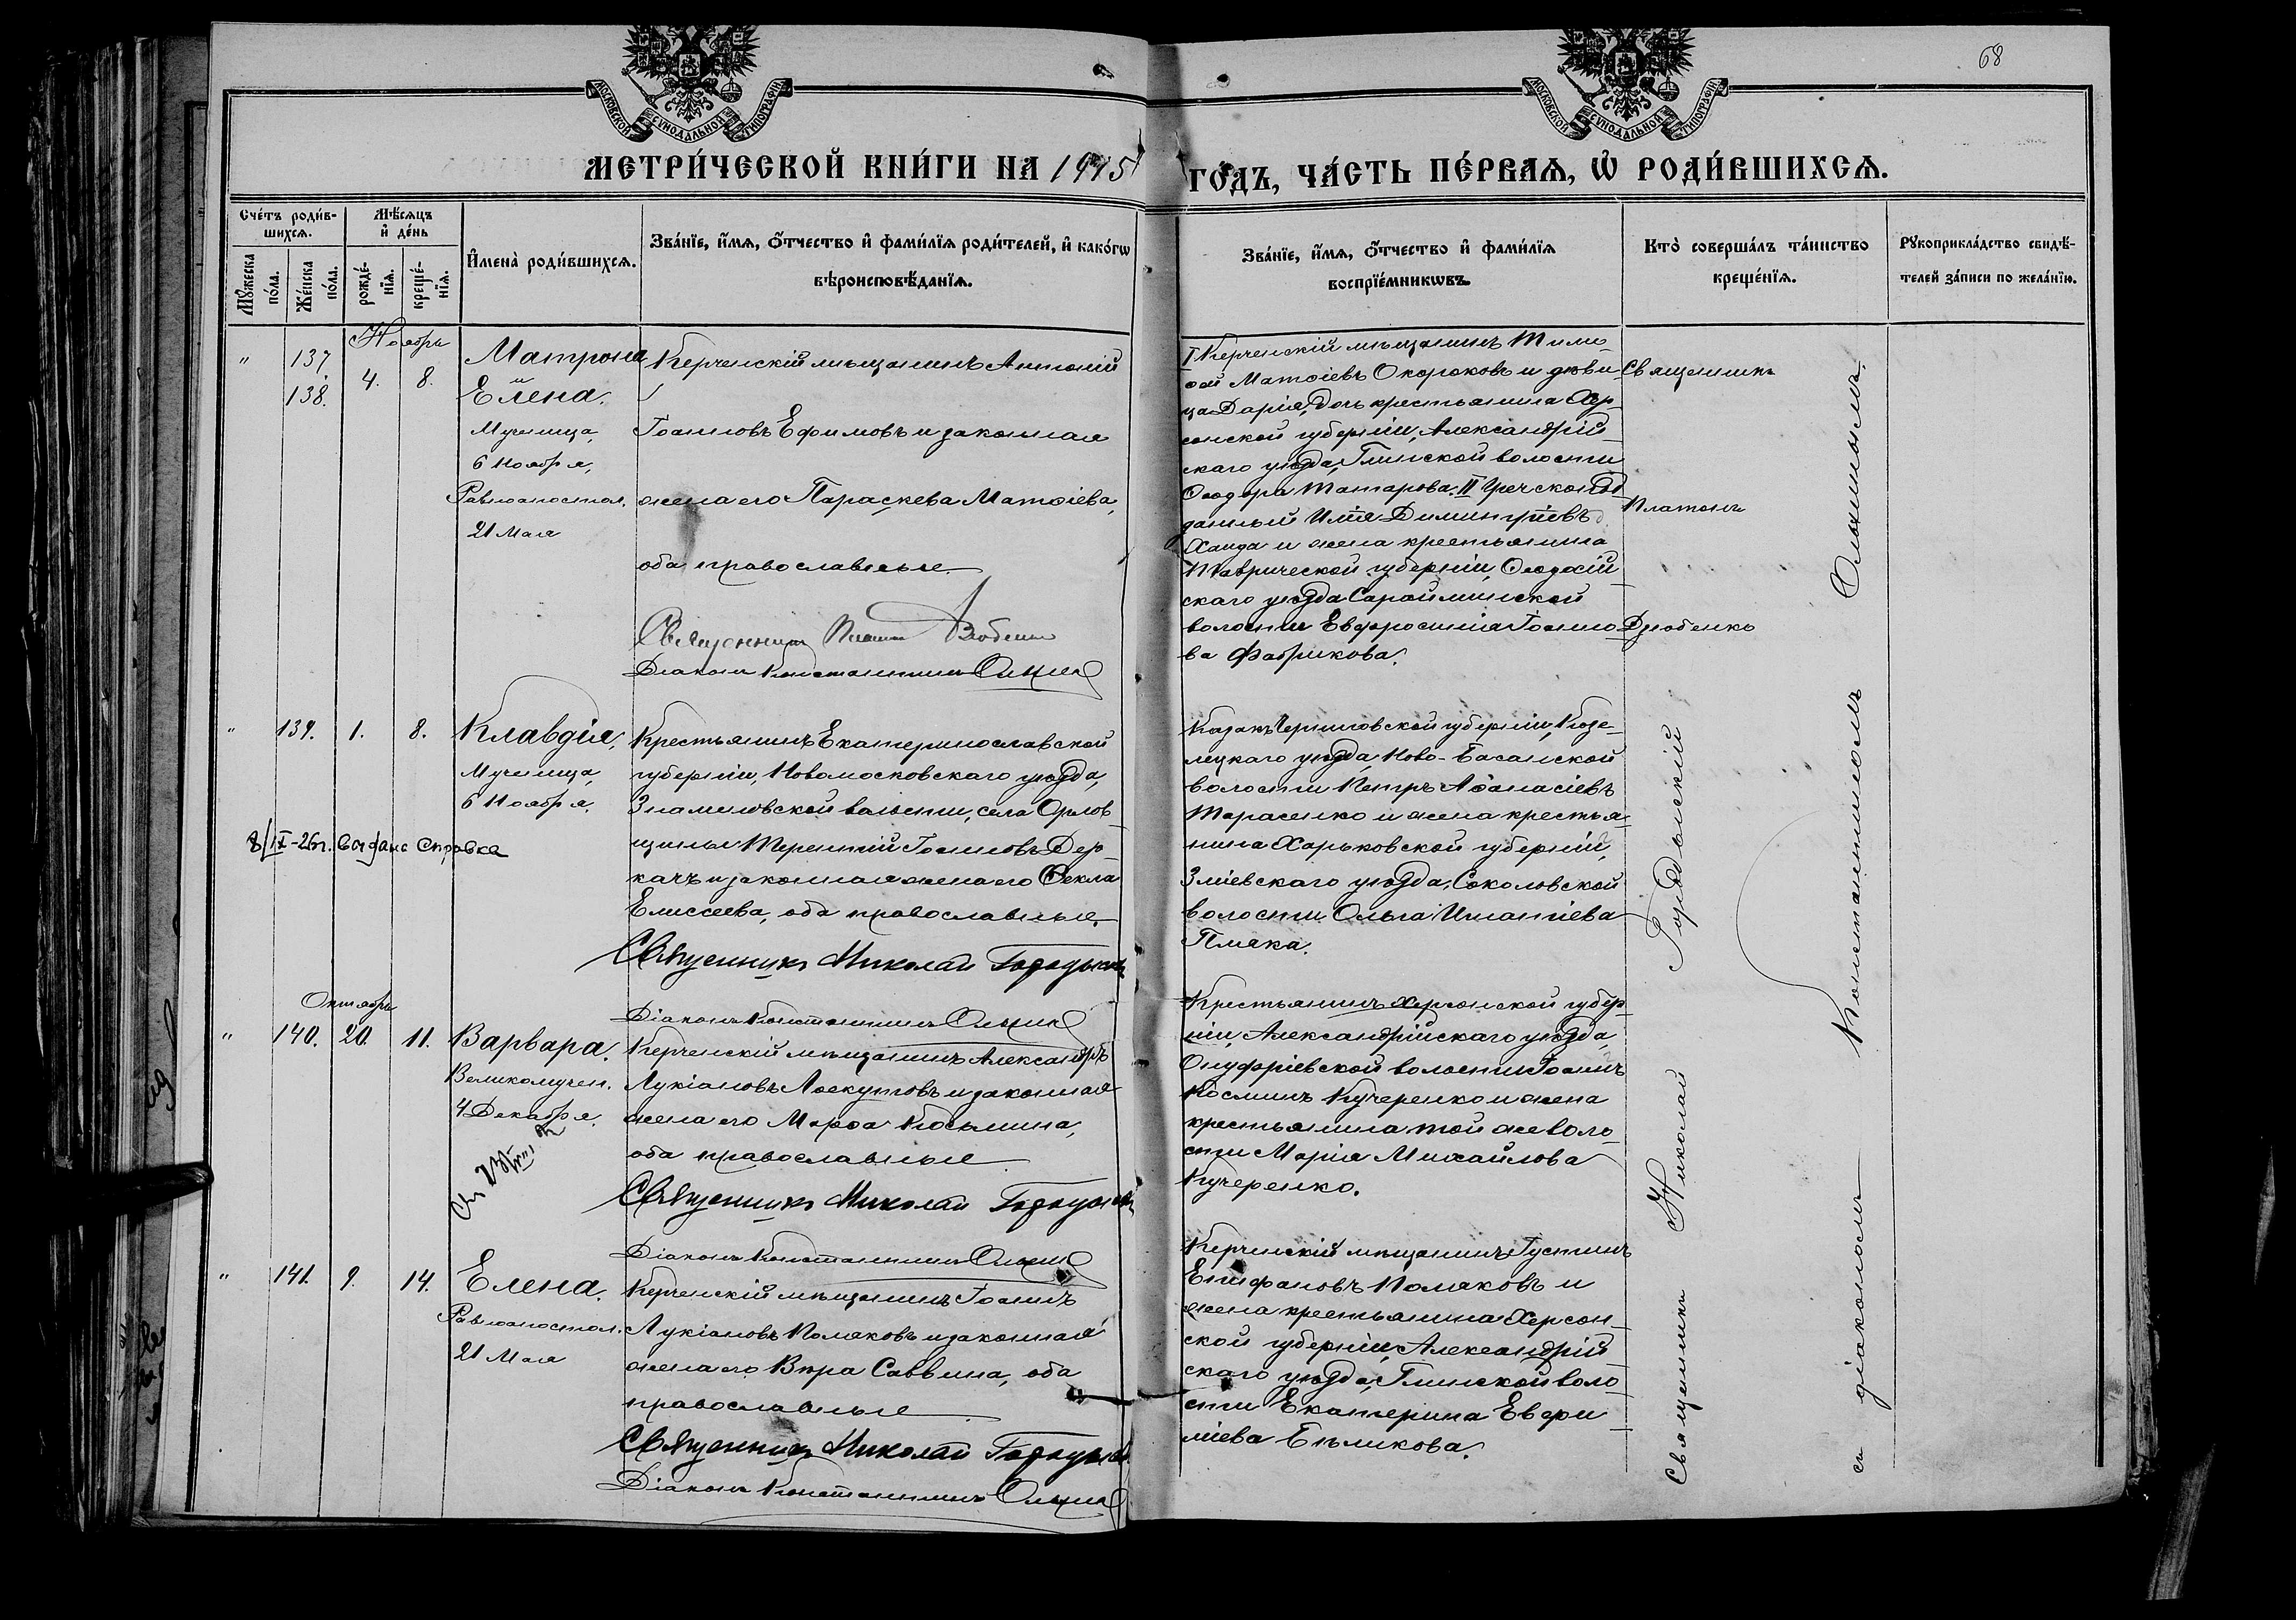 68
МОСКОВСКОЙ СУНОДАЛЬНОЙ ТИПОГРАФІИ
МОСКОВСКОЙ СУНОДАЛЬНОЙ ТИПОГРАФІИ
МЕТРИ́ЧЕСКОЙ КНИ́ГИ НА 1915 ГО́ДЪ, ЧА́СТЬ ПЕ́РВАѦ, Ѡ҆ РОДИ́ВШИХСѦ.
Сче́тъ роди́в-
шихсѧ.
Мꙋ́жеска
по́ла.
Же́нска
по́ла.
Мѣ́сѧцъ
и҆ де́нь
рожде́-
нїѧ.
креще́-
нїѧ.
И҆мена̀ роди́вшихсѧ.
Зва́нїе, и҆́мѧ, ѻ҆́тчество и҆ фами́лїѧ роди́телей, и҆ како́гѡ
вѣроисповѣ́данїѧ.
Зва́нїе, и҆́мѧ, ѻ҆́тчество и҆ фами́лїѧ
воспрїе́мникѡвъ.
Кто̀ соверша́лъ та́инство
креще́нїѧ.
Рꙋкоприкла́дство свидѣ́-
телей за́писи по жела́нїю.
Ноябрь
" 137. 138. 4. 8.
Матрона
и
Елена.
Мученица,
6 Ноября,
Равноапостол.
21 Мая
Керченскій мѣщанинъ Антоній
Іоанновъ Ефимовъ и законная
жена его Параскева Матѳіева,
оба православные.
Священникъ Платонъ Дзюбенко
Діаконъ Константинъ
I Керченскій мѣщанинъ Тимо-
ѳей Матѳіевъ Окороковъ и дѣви-
ца Дарія, дочь крестьянина Хер-
сонской губерніи, Александрій-
скаго уѣзда, Глинской волости
Ѳеодора Татарова. II Греческоподданный
Димитріевъ
Ханда и жена крестьянина
Таврической губерніи, Ѳеодосій-
скаго уѣзда Сарайминской
волости Евфросинія Іоанно-
ва Фабрикова.
Священникъ
Платонъ
Дзюбенко
" 139. 1. 8.
Клавдія,
Мученица,
6 Ноября.
8/IX-26г. выдана справка
Крестьянинъ Екатеринославской
губерніи, Новомосковскаго уѣзда,
Знаменовской волости, села Орлов-
щины Терентій Іоанновъ Дер-
качъ и законная жена его Ѳекла
Елисеева, оба православные.
Священникъ Николай
Діаконъ Константинъ
Казакъ Черниговской губерніи, Козе-
лецкаго уѣзда, Ново-Басанской
волости Петръ Аѳанасіевъ
Тарасенко и жена крестья-
нина Харьковской губерніи,
Зміевскаго уѣзда, Соколовской
волости Ольга Игнатіева
Октябрь
" 140. 20. 11.
Варвара.
Великомучен.
4 Декабря.
Керченскій мѣщанинъ Александръ
Лукіановъ и законная
жена его Марѳа Косьмина,
оба православные
Священникъ Николай
Діаконъ Константинъ
Крестьянинъ Херсонской губер-
ніи, Александрійскаго уѣзда,
Онуфріевской волости Іоаннъ
Косминъ Кучеренко и жена
крестьянина той же воло-
сти Марія Михайлова
Кучеренко.
" 141. 9. 14.
Елена.
Равноапостол.
21 Мая
Керченскій мѣщанинъ Іоаннъ
Лукіановъ Поляковъ и законная
жена его Вѣра Саввина, оба
православные
Священникъ Николай
Діаконъ Константинъ
Керченскій мѣщанинъ Іустинъ
Епифановъ Поляковъ и
жена крестьянина Херсон-
ской губерніи, Александрій-
скаго уѣзда, Глинской воло-
сти Екатерина Евфи-
міева Бѣликова.
Священникъ Николай
съ діакономъ Константиномъ